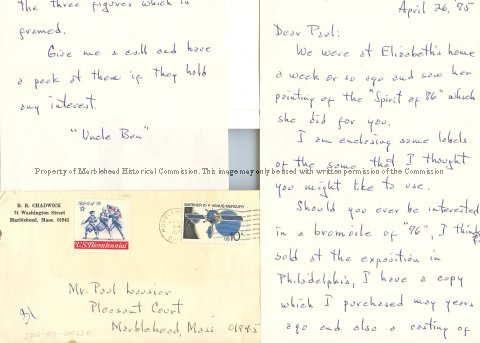 April 26, 95
Dear Paul:
We were at Elizabeth's home
a week or so ago and saw her
painting of the "Spirit of 86" which
she did for you.
I am enclosing some labels
of the same that I thought
you might like to use.
Should you ever be interested
in a bromoile of "96", I think
sold at the exposition in
Philadelphia, I have a copy
which I purchased may years
ago and also a casting of
the three figures which is
framed.
Give me a call and have
a peek at them if they hold
any interest.
"Uncle Ben"
Property of Marblehead Historical Commission. This image may only be used with written permission of the Commission
B. R. CHADWICK
74 Washington Street
Marblehead, Mass. 01945
Spirit of '76
U.S. Bicentennial
MARINER 10 ★ VENUS/MERCURY
US 10c
Mr. Paul
Pleasant Court
Marblehead, Mass 01945